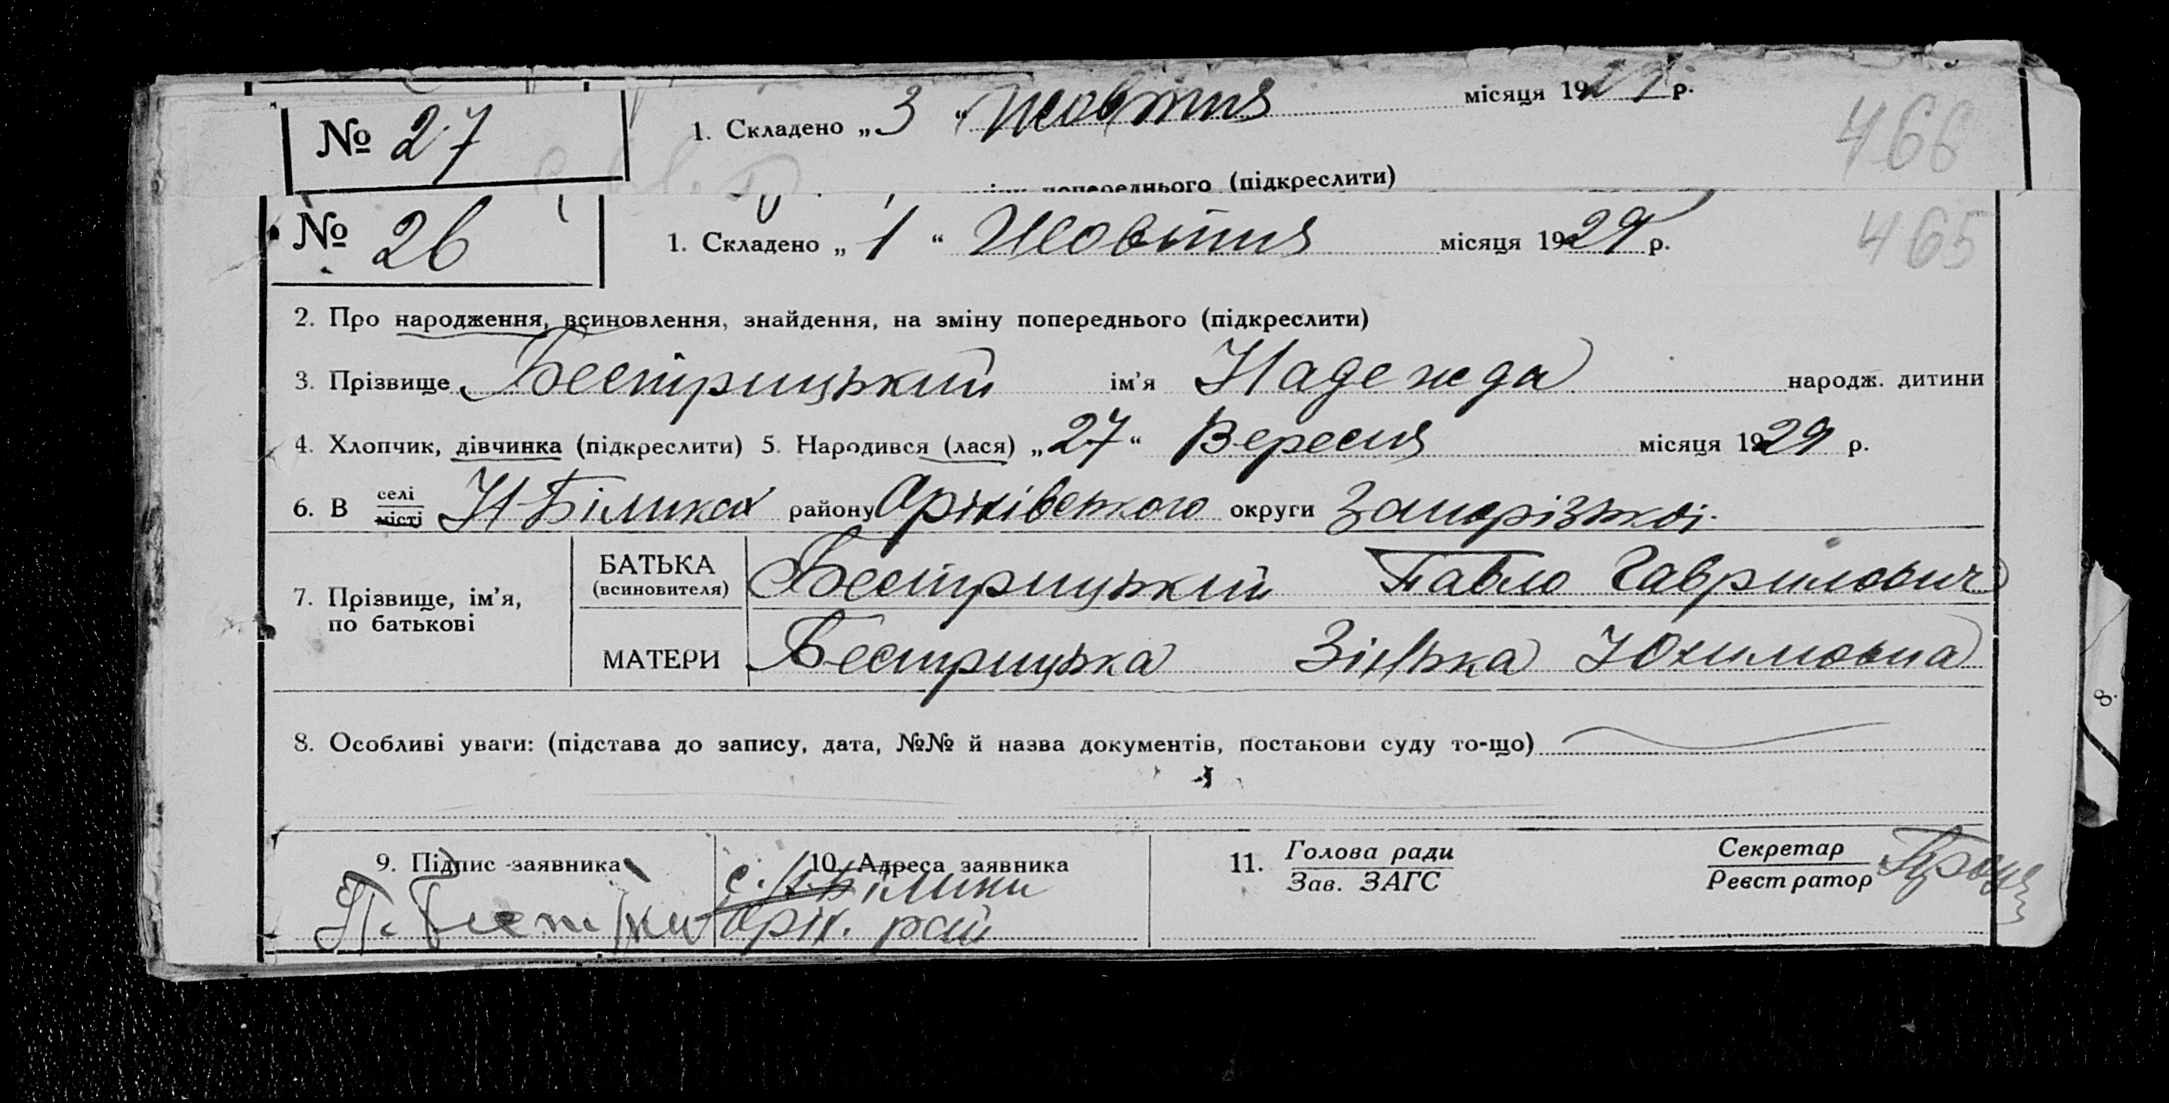 № 27
1. Складено „ 3 “ Жовтня місяця 1929 р.
466
попереднього (підкреслити)
№ 26
1. Складено „ 1 “ Жовтня місяця 1929 р.
465
2. Про народження, всиновлення, знайдення, на зміну попереднього (підкреслити)
3. Прізвище Бестрицький ім'я Надежда народж. дитини
4. Хлопчик, дівчинка (підкреслити) 5. Народився (лася) „ 27 “ Вересня місяця 1929 р.
6. В селі місті Н-Білика району Оріхівського округи Запорізької
7. Прізвище, ім'я, по батькові
БАТЬКА (всиновителя) Бестрицький Павло Гаврилович
МАТЕРИ Бестрицька Зінька Юхимовна
8. Особливі уваги: (підстава до запису, дата, №№ й назва документів, постанови суду то-що)
9. Підпис заявника
П.
10. Адреса заявника
с. Н-Білики
Оріх. рай
11. Голова ради
Зав. ЗАГС
Секретар
Реєстратор
8.